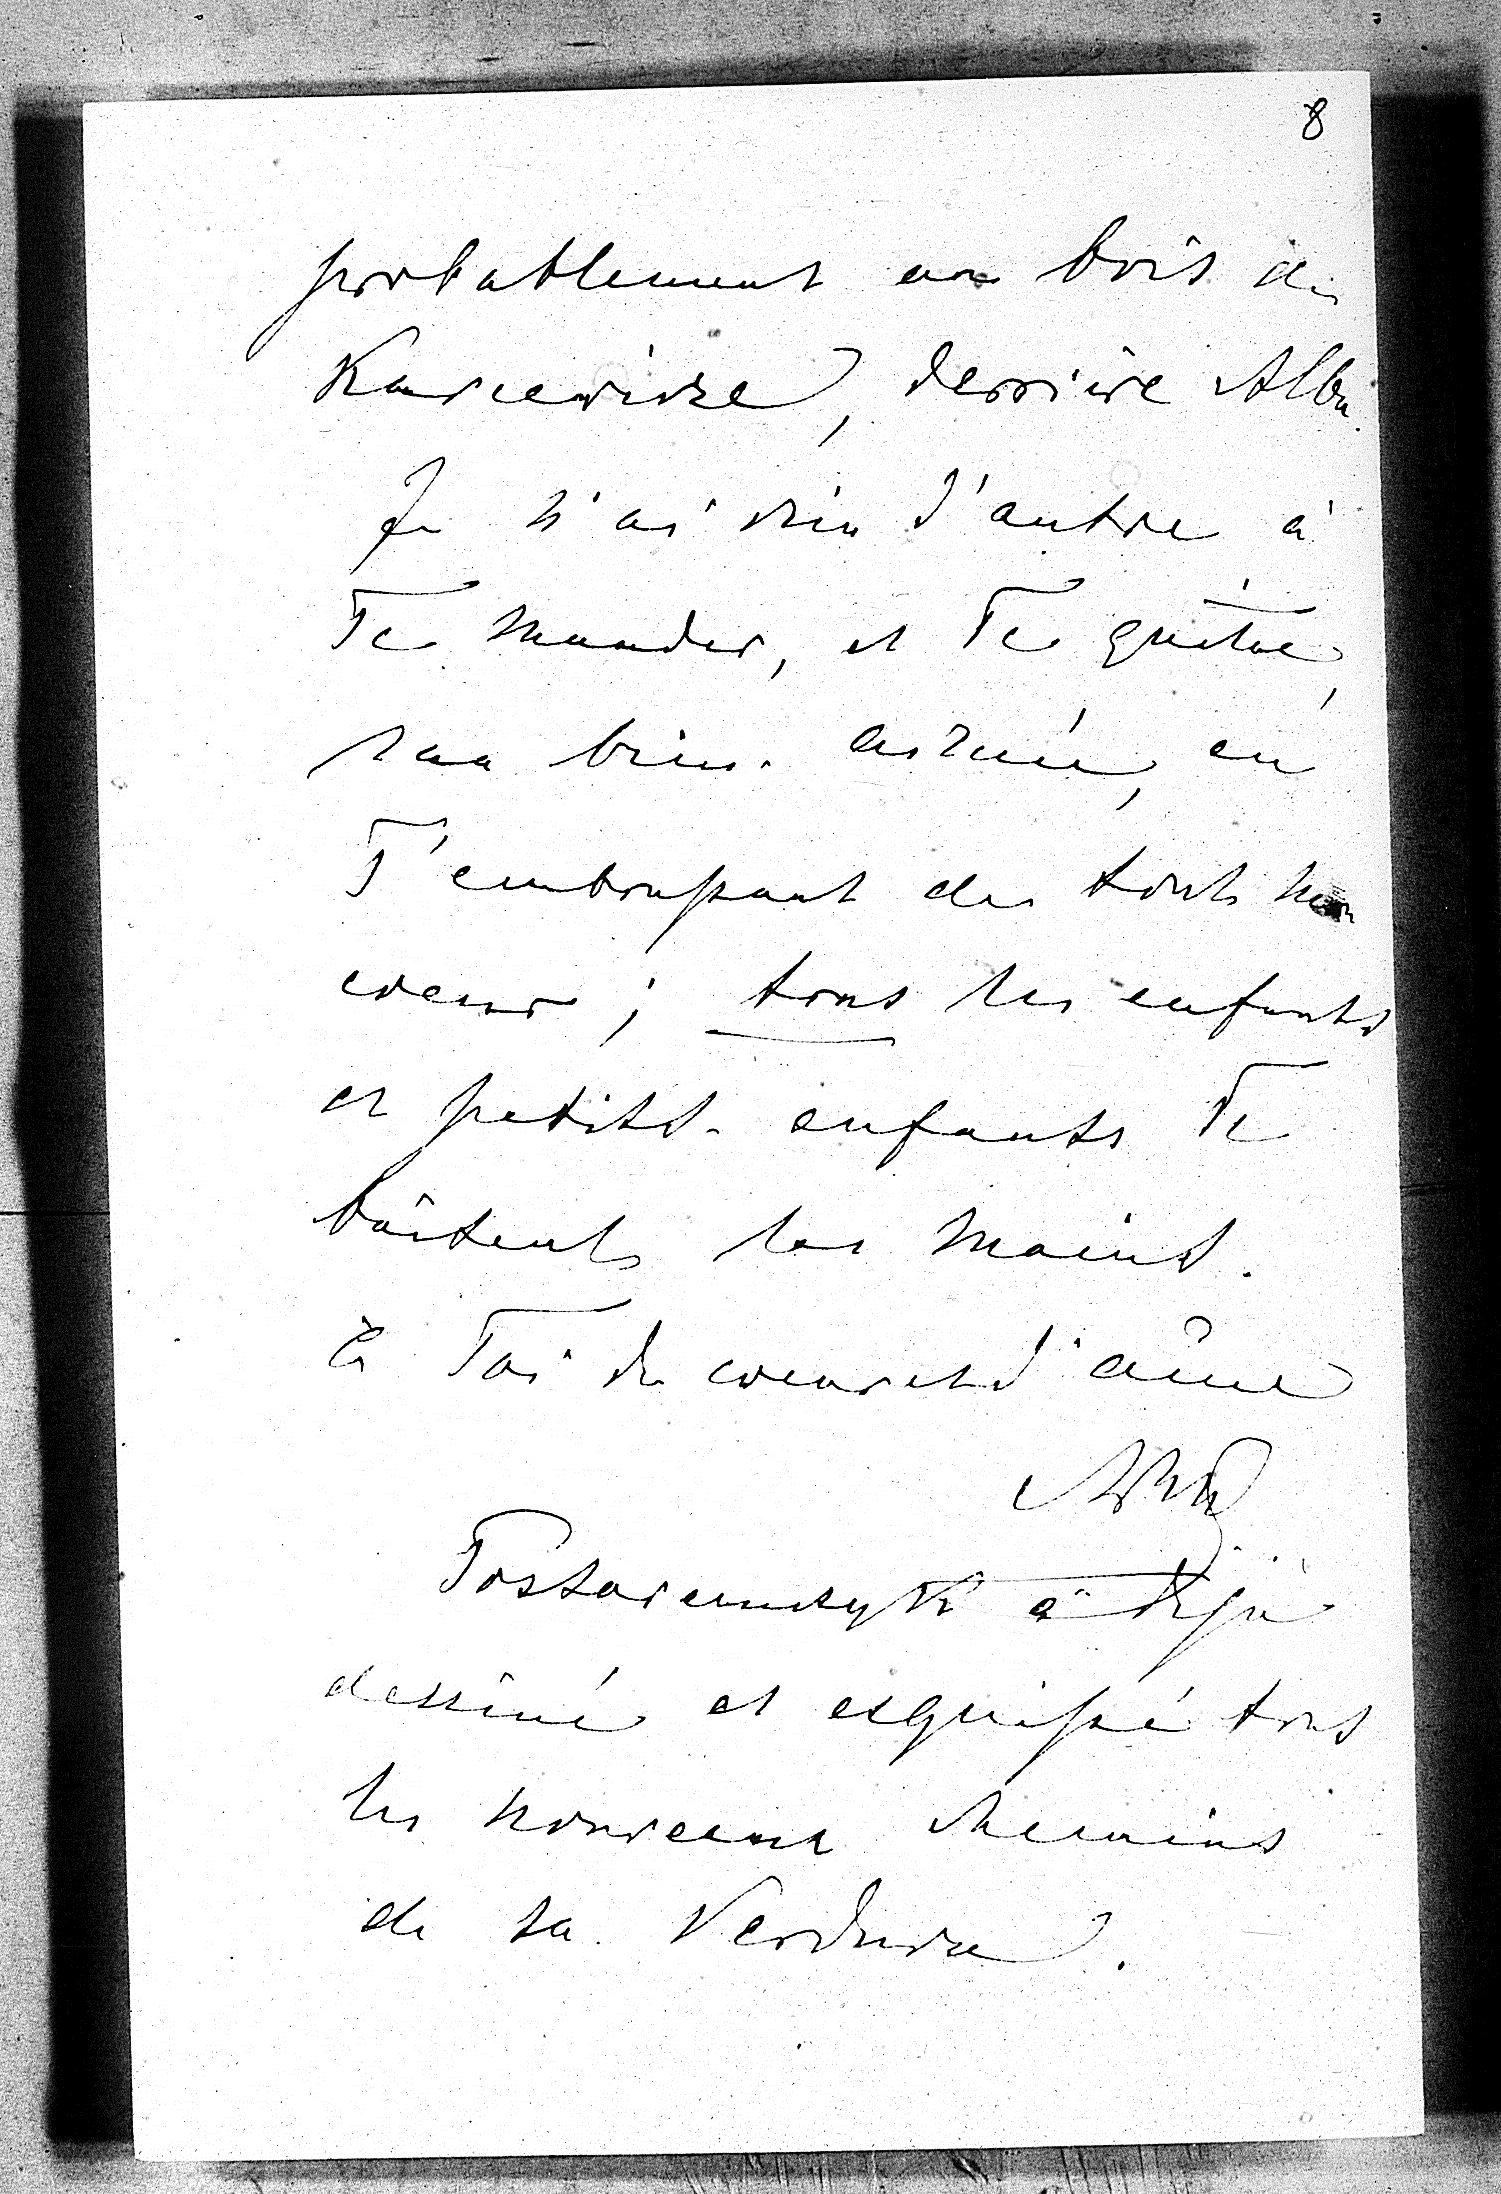 8
probablement au bois de
derrière Alba.
Je n'ai rien d'autre à
Te mander, et Te quitte,
ma bien-aimée, en
T'embrassant de tout mon
coeur; tous les enfants
et petits-enfants Te
baisent les mains.
à Toi de coeur et d'âme
a déjà
dessiné et esquissé tous
les nouveaux chemins
de la Verdura.